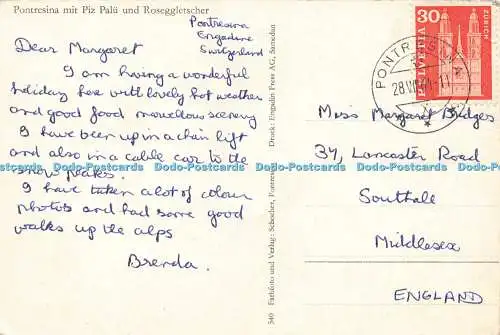 Pontresina mit Piz Palü und Roseggletscher
Pontresina
Engadine
Switzerland
Dear Margaret
I am having a wonderful
holiday here with lovely hot weather
and good food marvellous scenery
I have been up in a chair lift
and also in a cable car to the
snow peaks.
I have taken a lot of colour
photos and had some good
walks up the alps
Brenda.
540 Farbfoto und Verlag: Schocher, Pontresina Druck: Engadin Press AG, Samedan
30
HELVETIA
ZÜRICH
PONTRESINA
Miss Margaret Bridges
34, Lancaster Road
Southall
Middlesex
ENGLAND
Dodo-Postcards Dodo-Postcards Dodo-Postcards Dodo-Postcards Dodo-Postcards